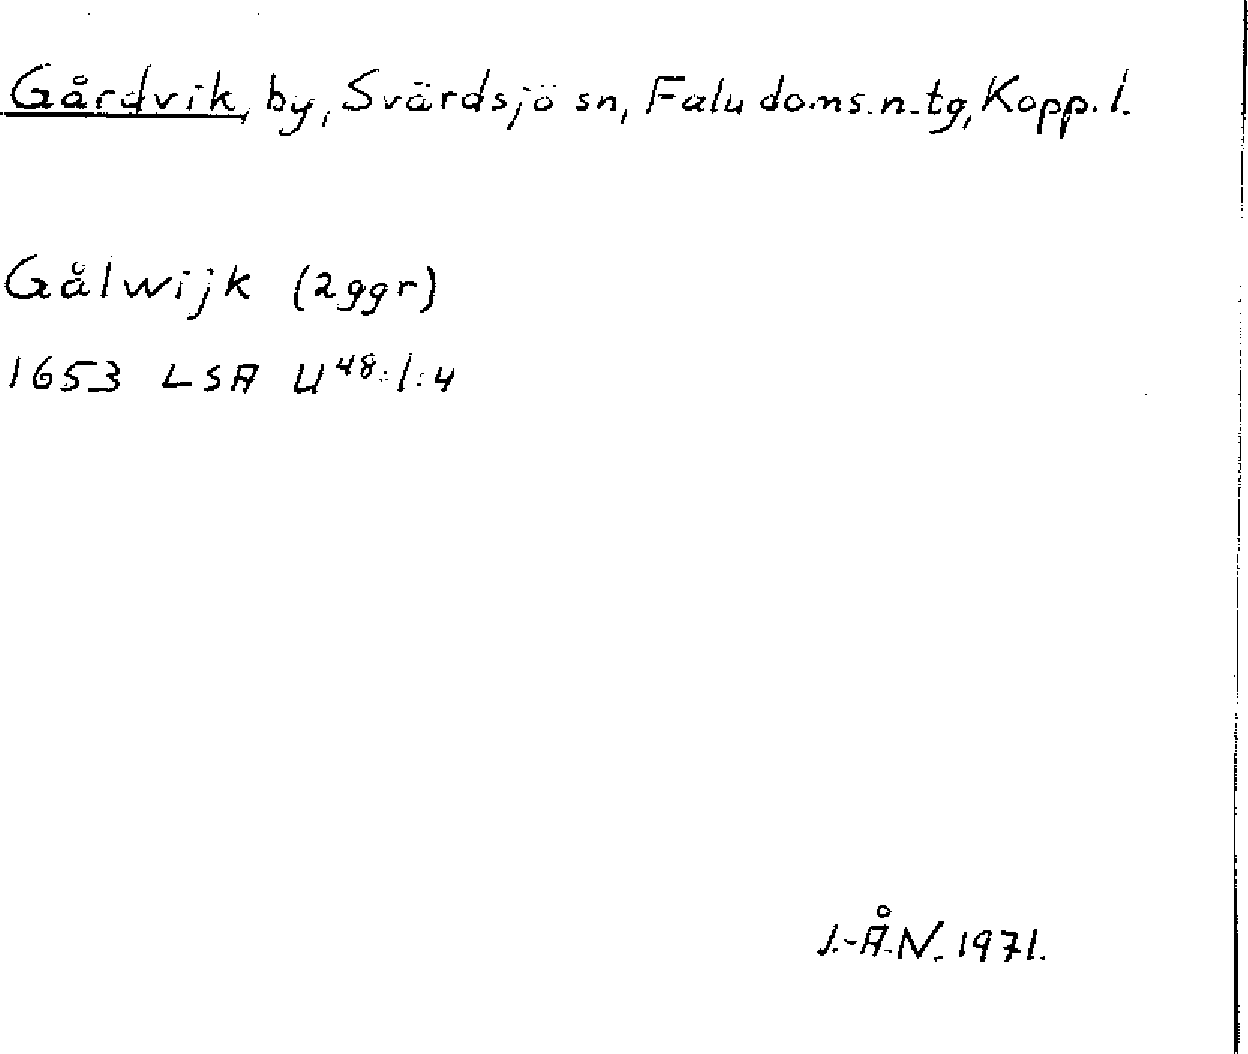 Gårdvik, by, Svärdsjö sn, Falu doms.n.tg, Kopp. l.
Gålwijk (2ggr)
1653 LSA U⁴⁸:1:4
J.-Å.N. 1971.